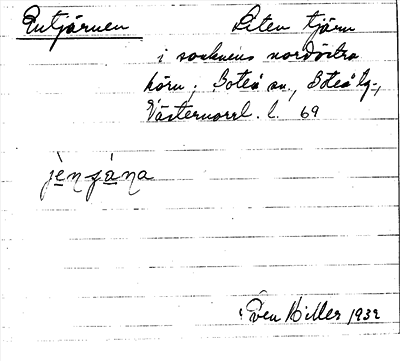 Entjärnen
Liten tjärn
i socknens nordöstra
hörn; Boteå sn., Boteå tg.,
Västernorrl. l. 69
jèn ʃána
Sven Hiller 1932